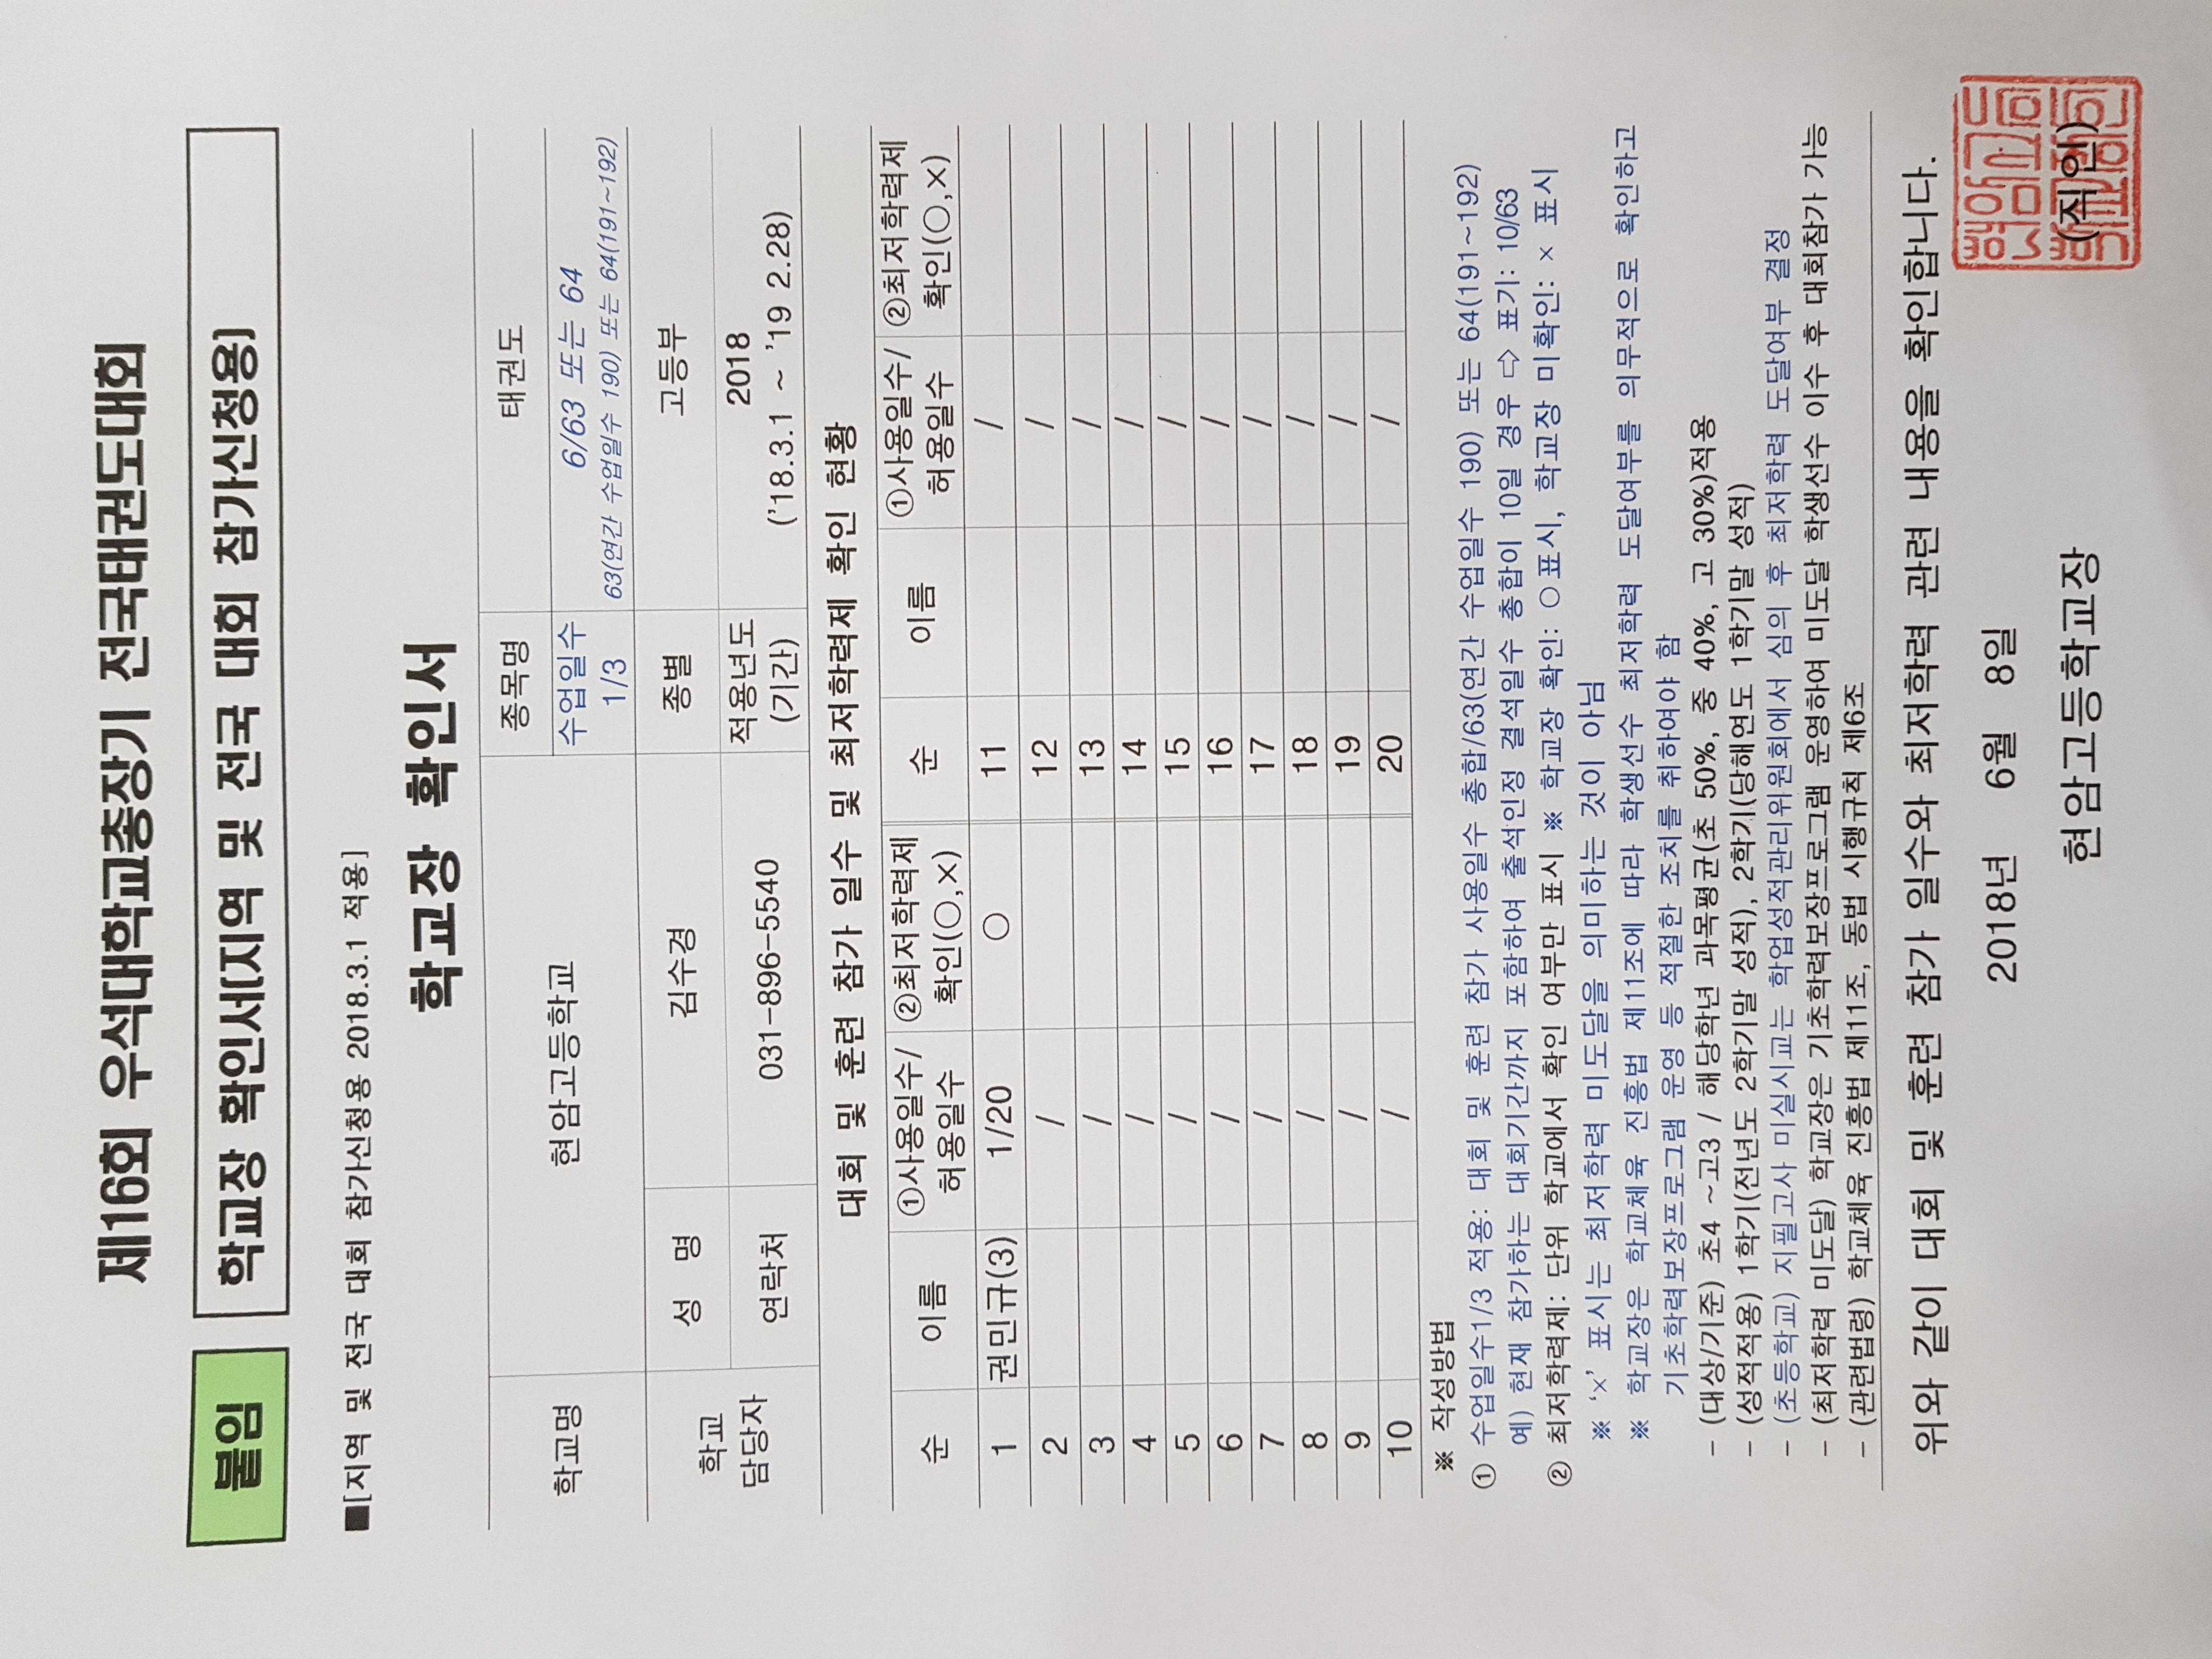 제16회 우석대학교총장기 전국태권도대회
붙임 학교장 확인서(지역 및 전국 대회 참가신청용)
■[지역 및 전국 대회 참가신청용 2018.3.1 적용]
학교장 확인서
학교명 현암고등학교 종목명 태권도
수업일수 1/3 6/63 또는 64
63(연간 수업일수 190) 또는 64(191~192)
학교 담당자 성 명 김수경 종별 고등부
연락처 031-896-5540 적용년도 (기간) 2018
('18.3.1 ~ '19 2.28)
대회 및 훈련 참가 일수 및 최저학력제 확인 현황
순 이름 ①사용일수/허용일수 ②최저학력제 확인(○,×) 순 이름 ①사용일수/허용일수 ②최저학력제 확인(○,×)
1 권민규(3) 1/20 ○ 11 /
2 / 12 /
3 / 13 /
4 / 14 /
5 / 15 /
6 / 16 /
7 / 17 /
8 / 18 /
9 / 19 /
10 / 20 /
※ 작성방법
① 수업일수1/3 적용: 대회 및 훈련 참가 사용일수 총합/63(연간 수업일수 190) 또는 64(191~192)
예) 현재 참가하는 대회기간까지 포함하여 출석인정 결석일수 총합이 10일 경우 ⇨ 표기: 10/63
② 최저학력제: 단위 학교에서 확인 여부만 표시 ※ 학교장 확인: ○표시, 학교장 미확인: × 표시
※ '×' 표시는 최저학력 미도달을 의미하는 것이 아님
※ 학교장은 학교체육 진흥법 제11조에 따라 학생선수 최저학력 도달여부를 의무적으로 확인하고
기초학력보장프로그램 운영 등 적절한 조치를 취하여야 함
- (대상/기준) 초4 ~고3 / 해당학년 과목평균(초 50%, 중 40%, 고 30%)적용
- (성적적용) 1학기(전년도 2학기말 성적), 2학기(당해연도 1학기말 성적)
- (초등학교) 지필고사 미실시교는 학업성적관리위원회에서 심의 후 최저학력 도달여부 결정
- (최저학력 미도달) 학교장은 기초학력보장프로그램 운영하여 미도달 학생선수 이수 후 대회참가 가능
- (관련법령) 학교체육 진흥법 제11조, 동법 시행규칙 제6조
위와 같이 대회 및 훈련 참가 일수와 최저학력 관련 내용을 확인합니다.
2018년 6월 8일
현암고등학교장 (직인)